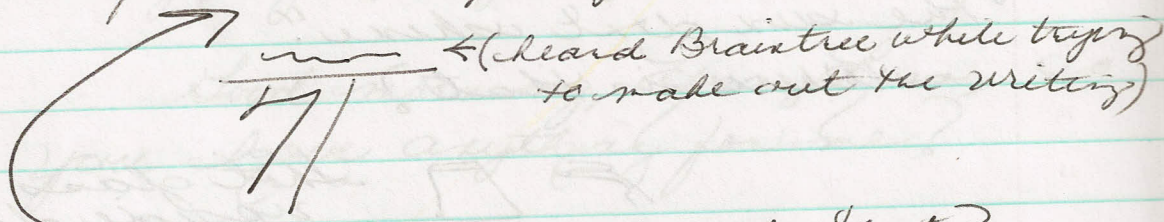 (heard Braintree while trying
to make out the writing)